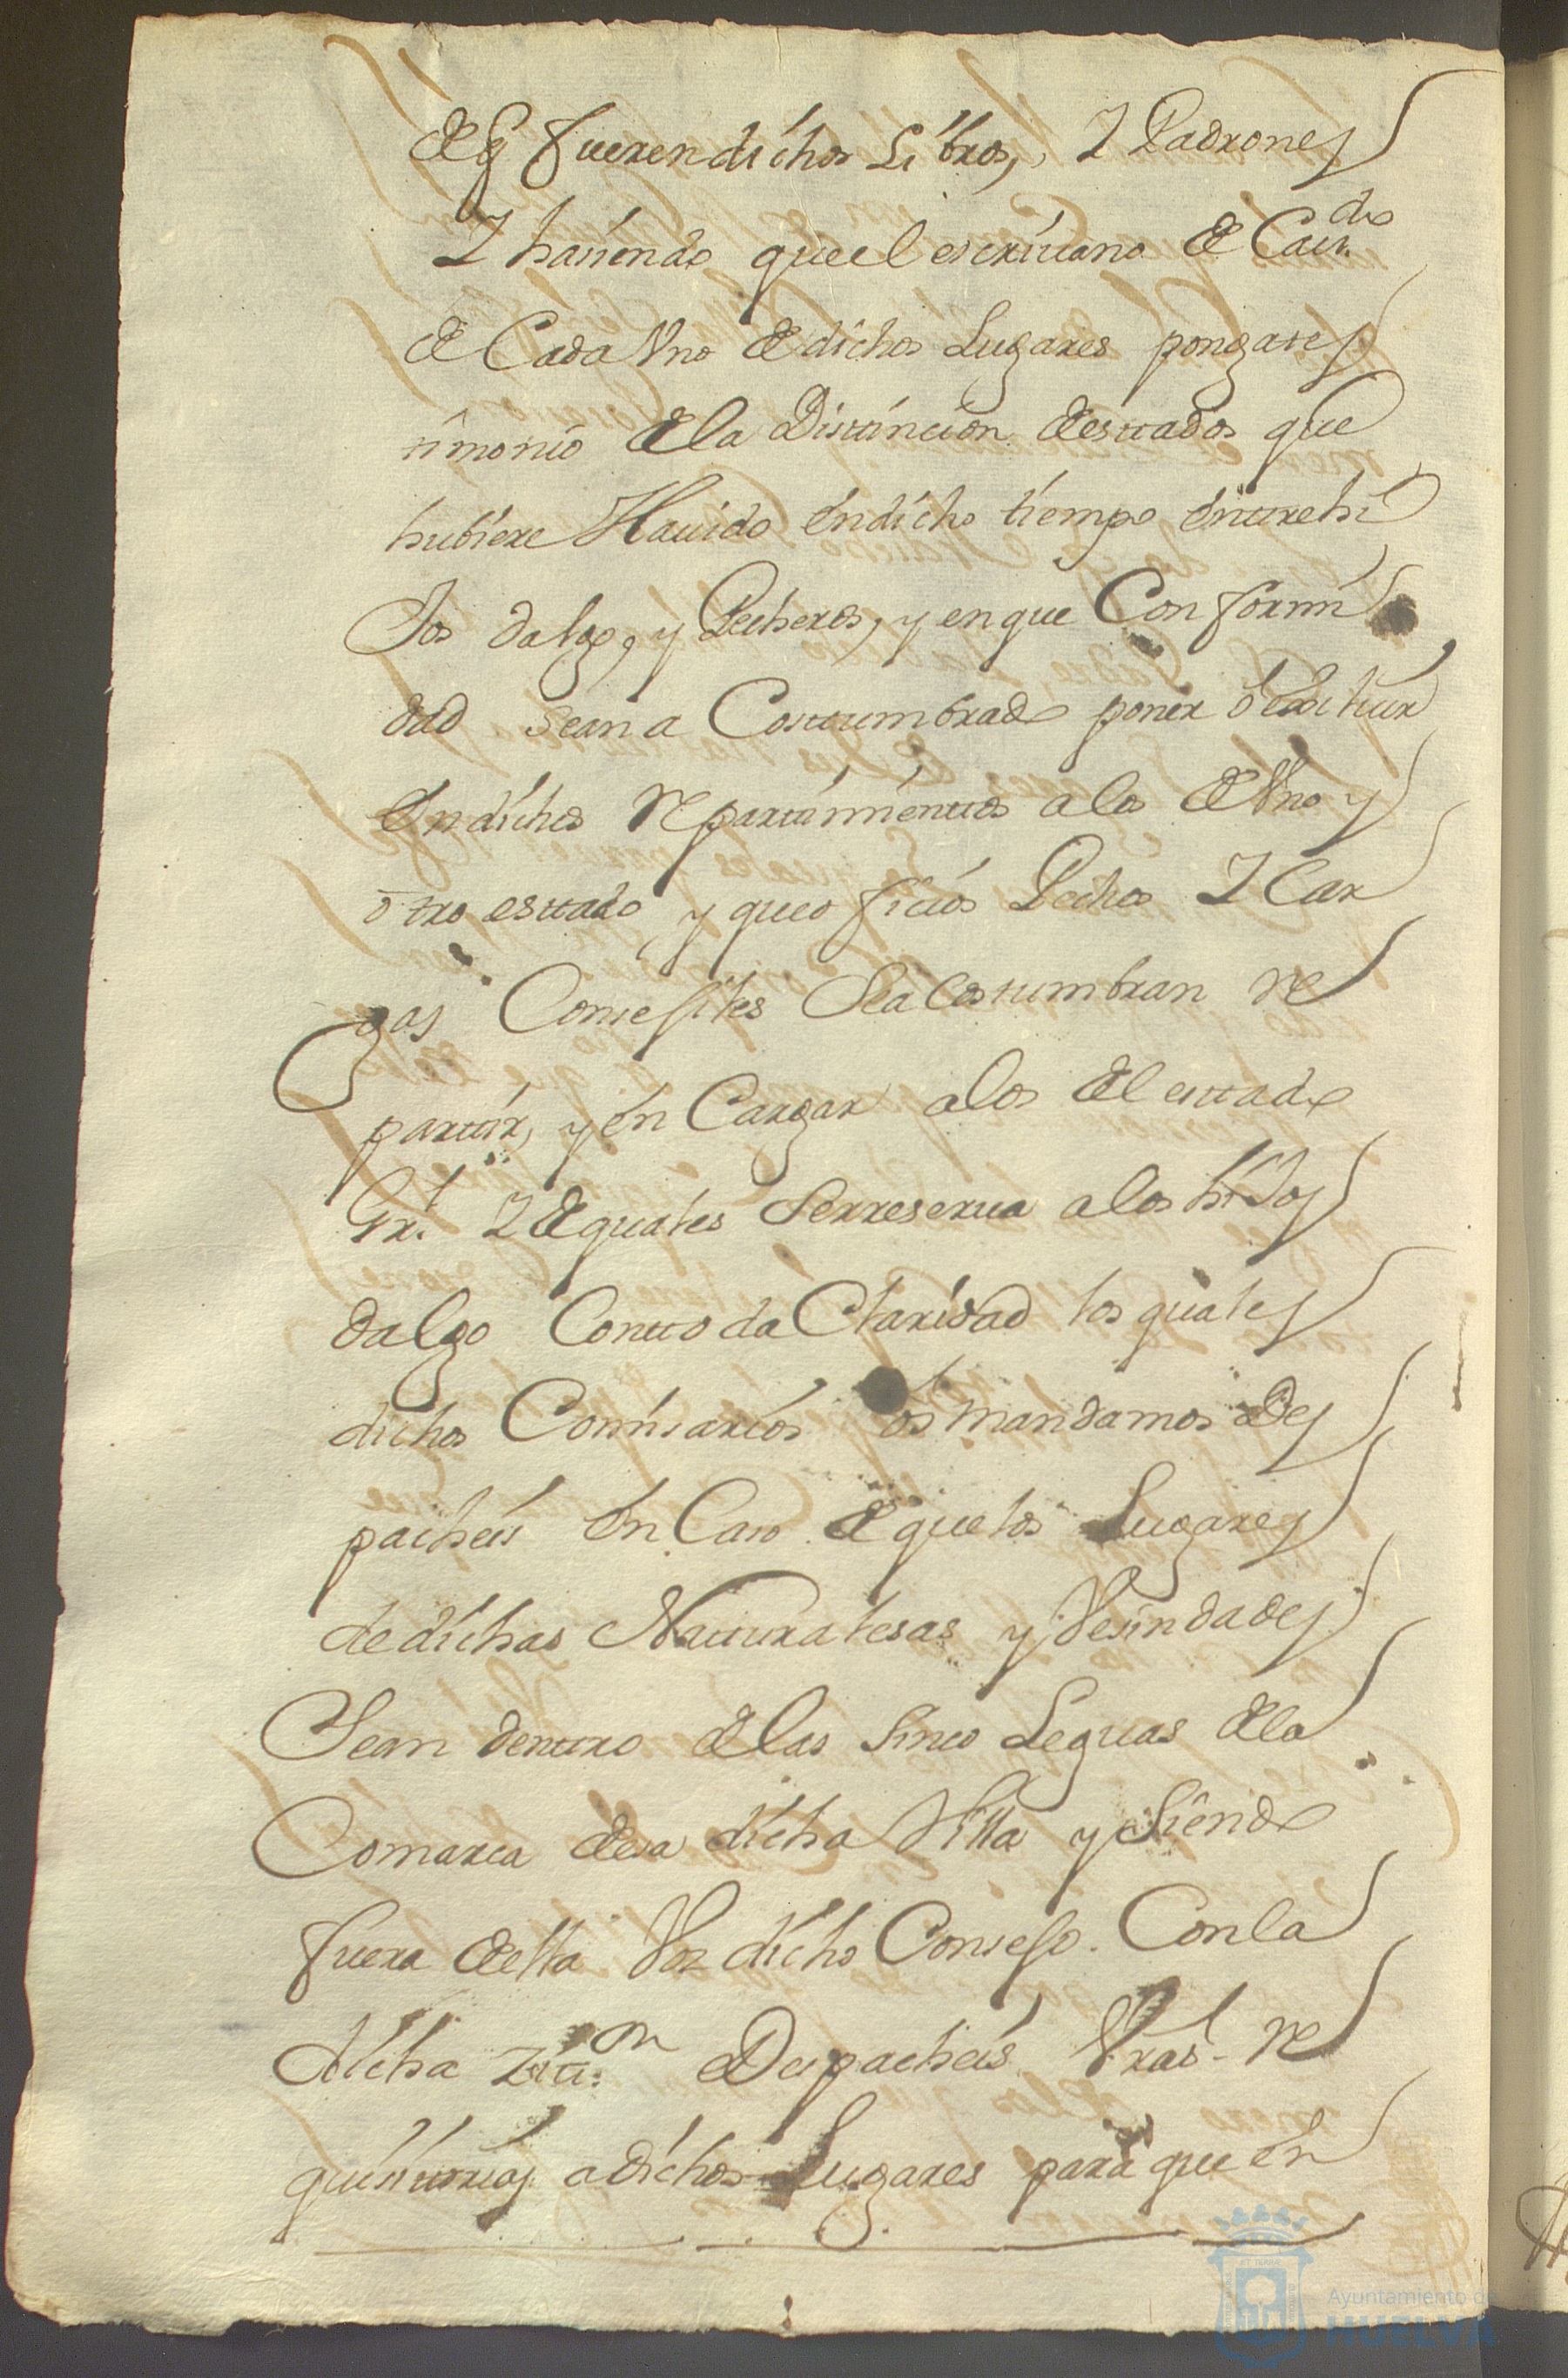 de q fueren dichos Libros, Y Padrones
Y hasiendo que el escriuano de Cau.do
de Cada Vno de dichos Lugares ponga tes
timonio de la Distincion de estados que
hubiere Hauido en dicho tiempo entre hi
Jos dalgo, y Pecheros, y en que Conformi
dad se an a Costumbrado poner o
en dichos Repartimientos a los de Vno y
otro estado y que oficios Pechos Y Car
gas Consegiles Se a Costumbran re
partir, y en Cargar a los del estado
Gr.l Y de quales se rreserua a los hiJos
dalgo Con toda Claridad los quales
dichos Comisarios os mandamos Des
pacheis en Caso de que los Lugares
de dichas Naturalesas y Vesindades
Sean dentro de las sinco Leguas de la
Comarca de sa dicha Villa y siendo
fuera della Vos dicho Consejo. Con la
dicha Zita:on Despacheis Vras. re
quisitorias a dichos Lugares para que en
Ayuntamiento de
HUELVA